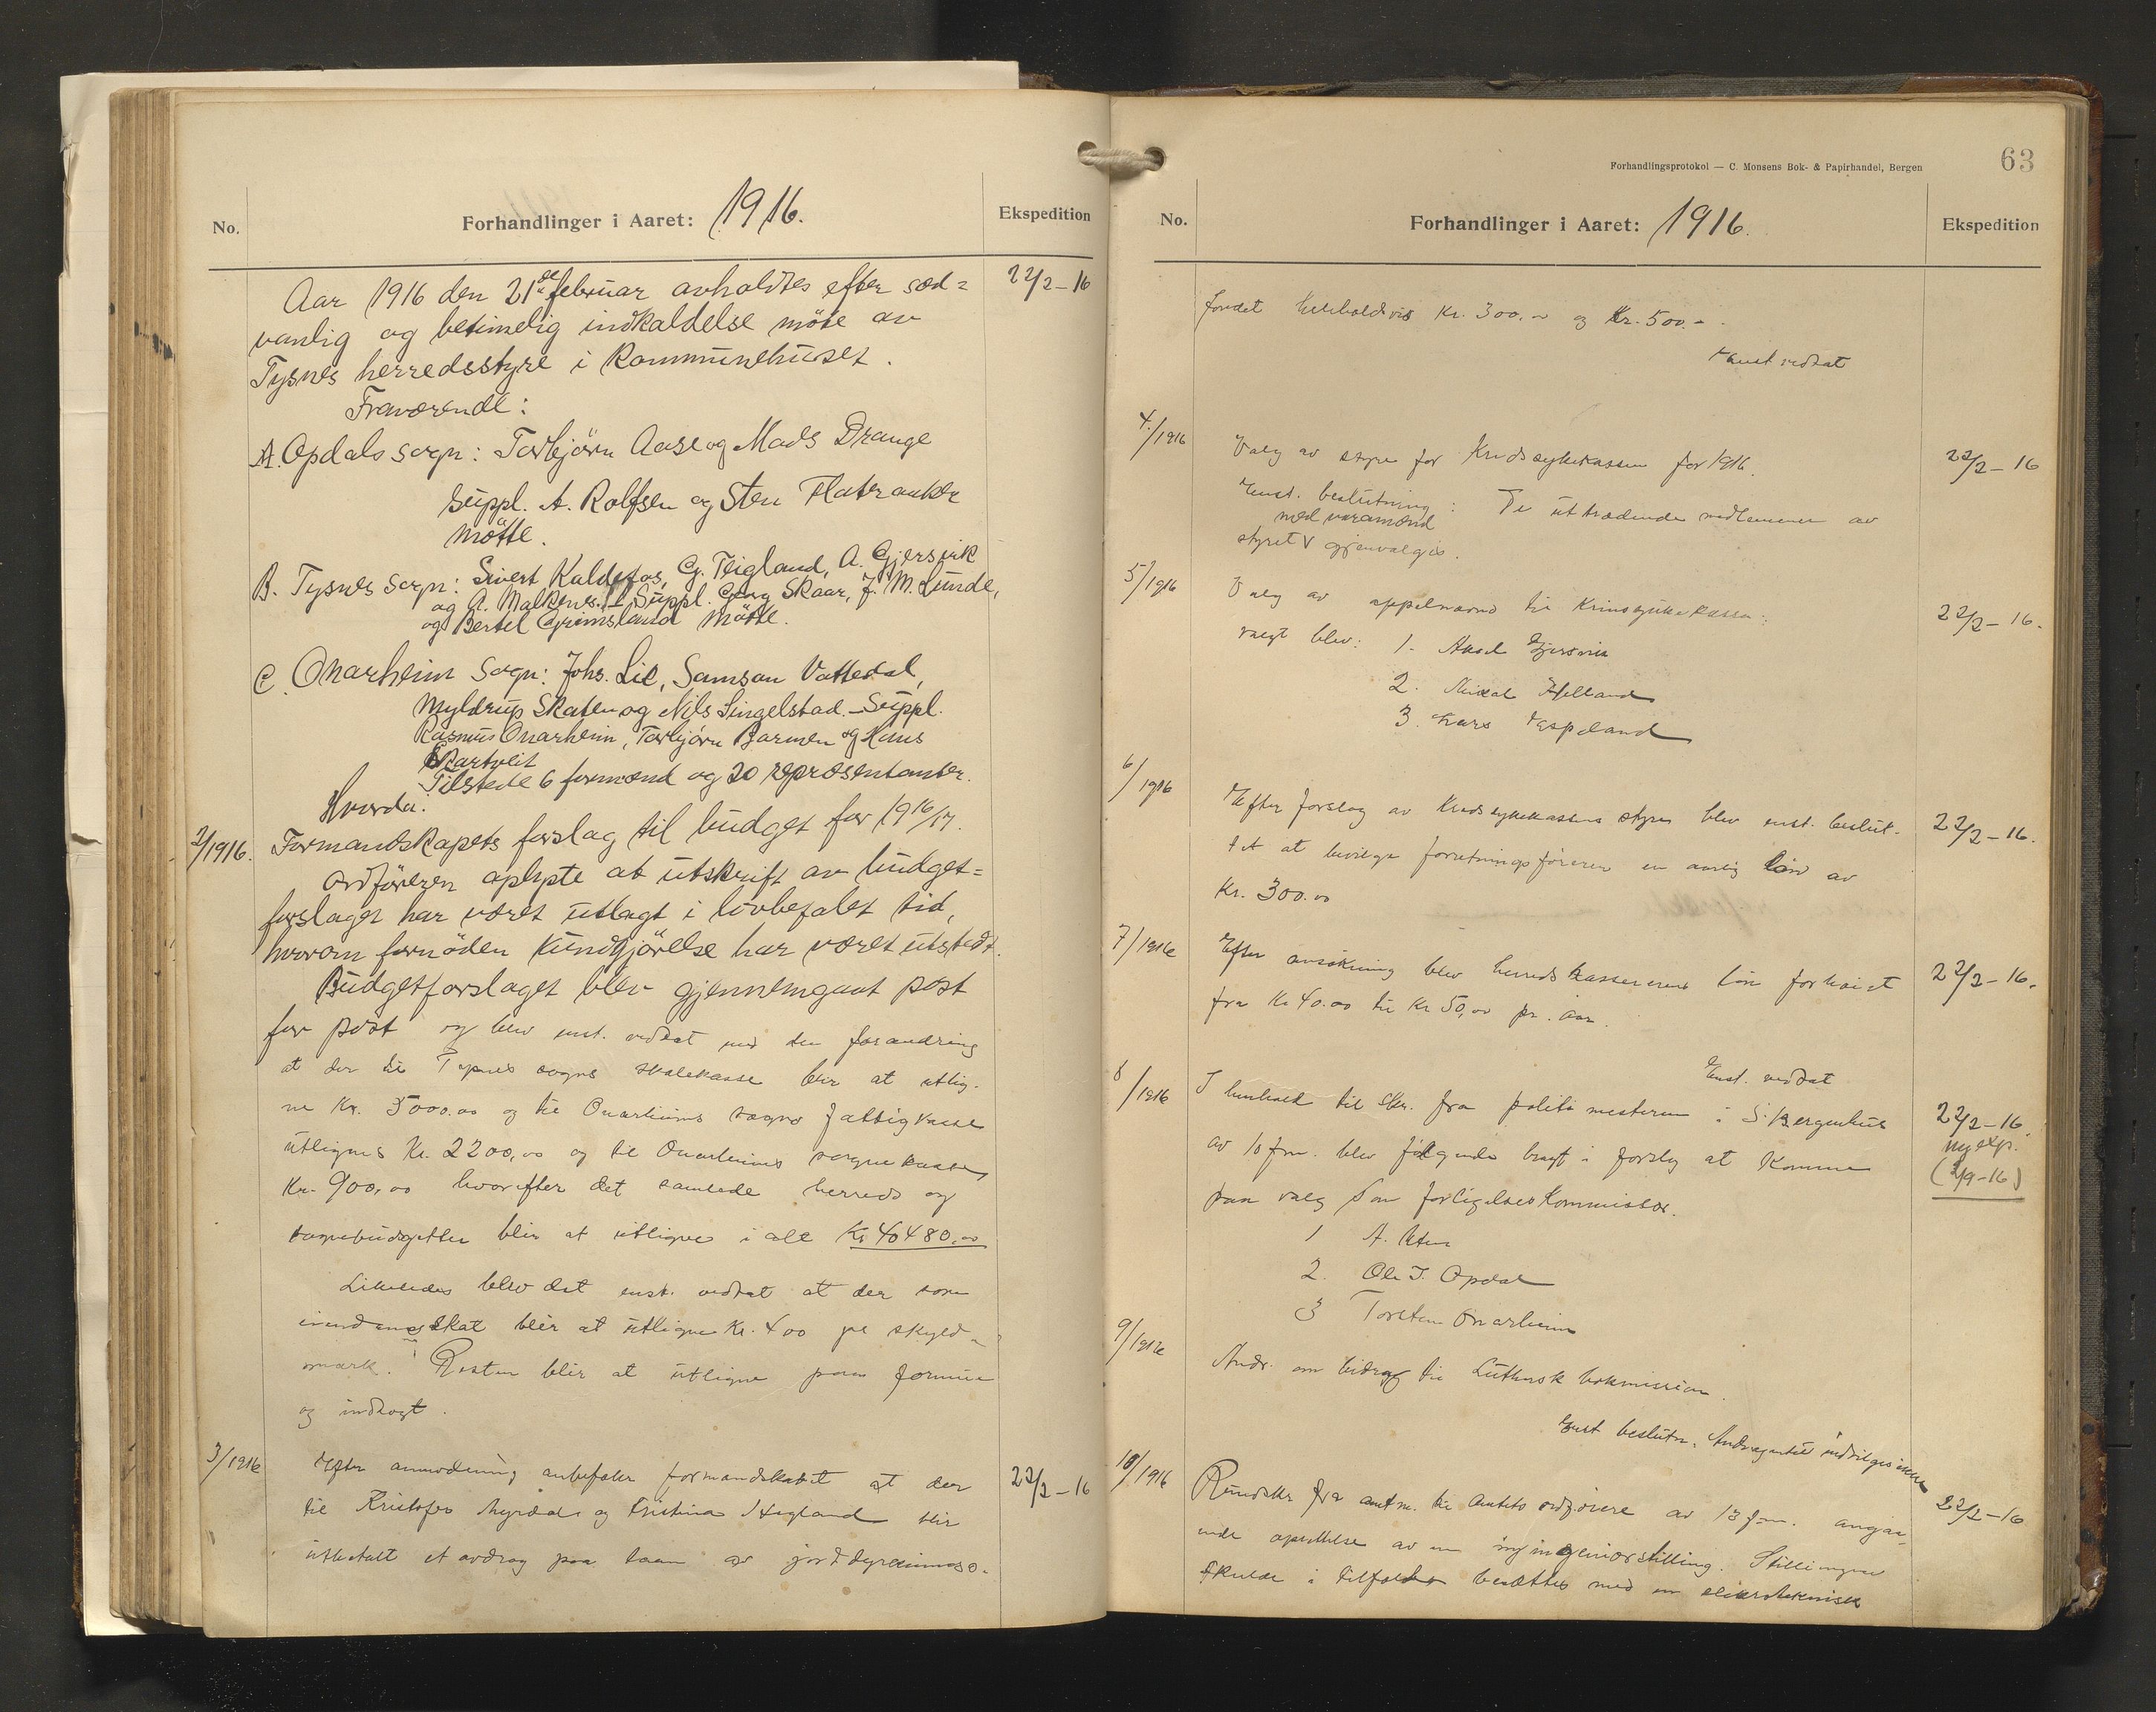 No.
Forhandlinger i Aaret: 1916.
Ekspedition
Aar 1916 den 21de februar avholdtes efter sæd=
22/2-16
vanlig og betimelig indkaldelse möte av
Tysnes herredsstyre i Kommunehuset.
Fraværende:
A. Opdals sogn: Torbjörn Aase og Mads Drange
Suppl. A. Rolfsen og Sten Flateraaker
mötte.
B. Tysnes sogn: Sivert Kaldefos, G. Teigland, A. Gjersvik
og A. Malkenes. Suppl. Georg Skaar, J. M. Lunde,
og Bertel Grimsland mötte.
C. Onarheim Sogn: Johs. Lie, Samson Vattedal,
Myldrup Skaten og Nils Singelstad. - Suppl.
Rasmus Onarheim, Torbjörn Barmen og Hans
Tilstede 6 formænd og 20 repræsentanter.
Hvorda:
2/1916.
Formandskapets forslag til budget for 1916/17.
Ordföreren oplyste at utskrift av budget=
forslaget har været utlagt i lovbefalet tid,
hvorom fornöden kundgjörelse har været utstedt.
Budgetforslaget blev gjennemgaat post
for post og blev enst. vedtat med den forandring
at der til Tysnes sogns skolekasse blir at utlig-
ne Kr. 5000.00 og til Onarheims sogns fattigkasse
utlignes Kr. 2200,00 og til Onarheims sognekasse
Kr. 900,00 hvorefter det samlede herreds og
sognebudgetter blir at utligne i alt Kr 40480.00
Likeledes blev det enst. vedtat at der som
eiendomsskat blir at utligne Kr. 4 00 pr skyld-
mark. Resten blir at utligne paa formue
og indtægt.
3/1916
Efter anmodning anbefaler formandskabet at der
22/2-16
til Kristofer Myrdal og Kristina Hegland blir
utbetalt et avdrag paa laan av jorddyrkningsfo-
Forhandlingsprotokol — C. Monsens Bok- & Papirhandel, Bergen
63
No.
Forhandlinger i Aaret: 1916.
Ekspedition
fondet henholdsvis Kr. 300.00 og Kr. 500.-
Enst vedtat
4/1916
Valg av styre for Kredssykekassen for 1916.
22/2-16
Enst. beslutning: De uttrædende medlemmer av
med varamænd
styret v gjenvalgtes.
5/1916
Valg av appelnævnd til Kredssykekassen:
22/2-16.
valgt blev: 1. Aksel Gjersvik
2. Mikal Hélland
3. Lars Espeland
6/1916
Efter forslag av Kredssykekassens styre blev enst. beslut-
22/2-16.
tet at bevilge forretningsföreren en aarlig lön av
Kr. 300.00
7/1916
Efter ansökning blev herredskassererens lön forhöiet
22/2-16.
fra Kr 40.00 til Kr 50,00 pr. aar.
Enst. vedtat
8/1916
I henhold til skr. fra politimesteren i S. Bergenhus
22/2-16.
av 10 f.m. blev fölgende bragt i forslag at komme
ny exp.
(2/9-16)
paa valg som forligelseskommissær.
1
2. Ole J. Opdal
3 Torsten Onarheim
9/1916
Andr. om bidrag til Luthersk bokmission.
Enst beslutn. Andragendet indvilges ikke
10/1916
Rundskr fra amtm. til amtets ordförere av 13 f.m. angaa-
22/2-16
ende oprettelse av en ny ingeniörstilling. Stillingen
skulde i tilfælde besættes med en elektroteknisk